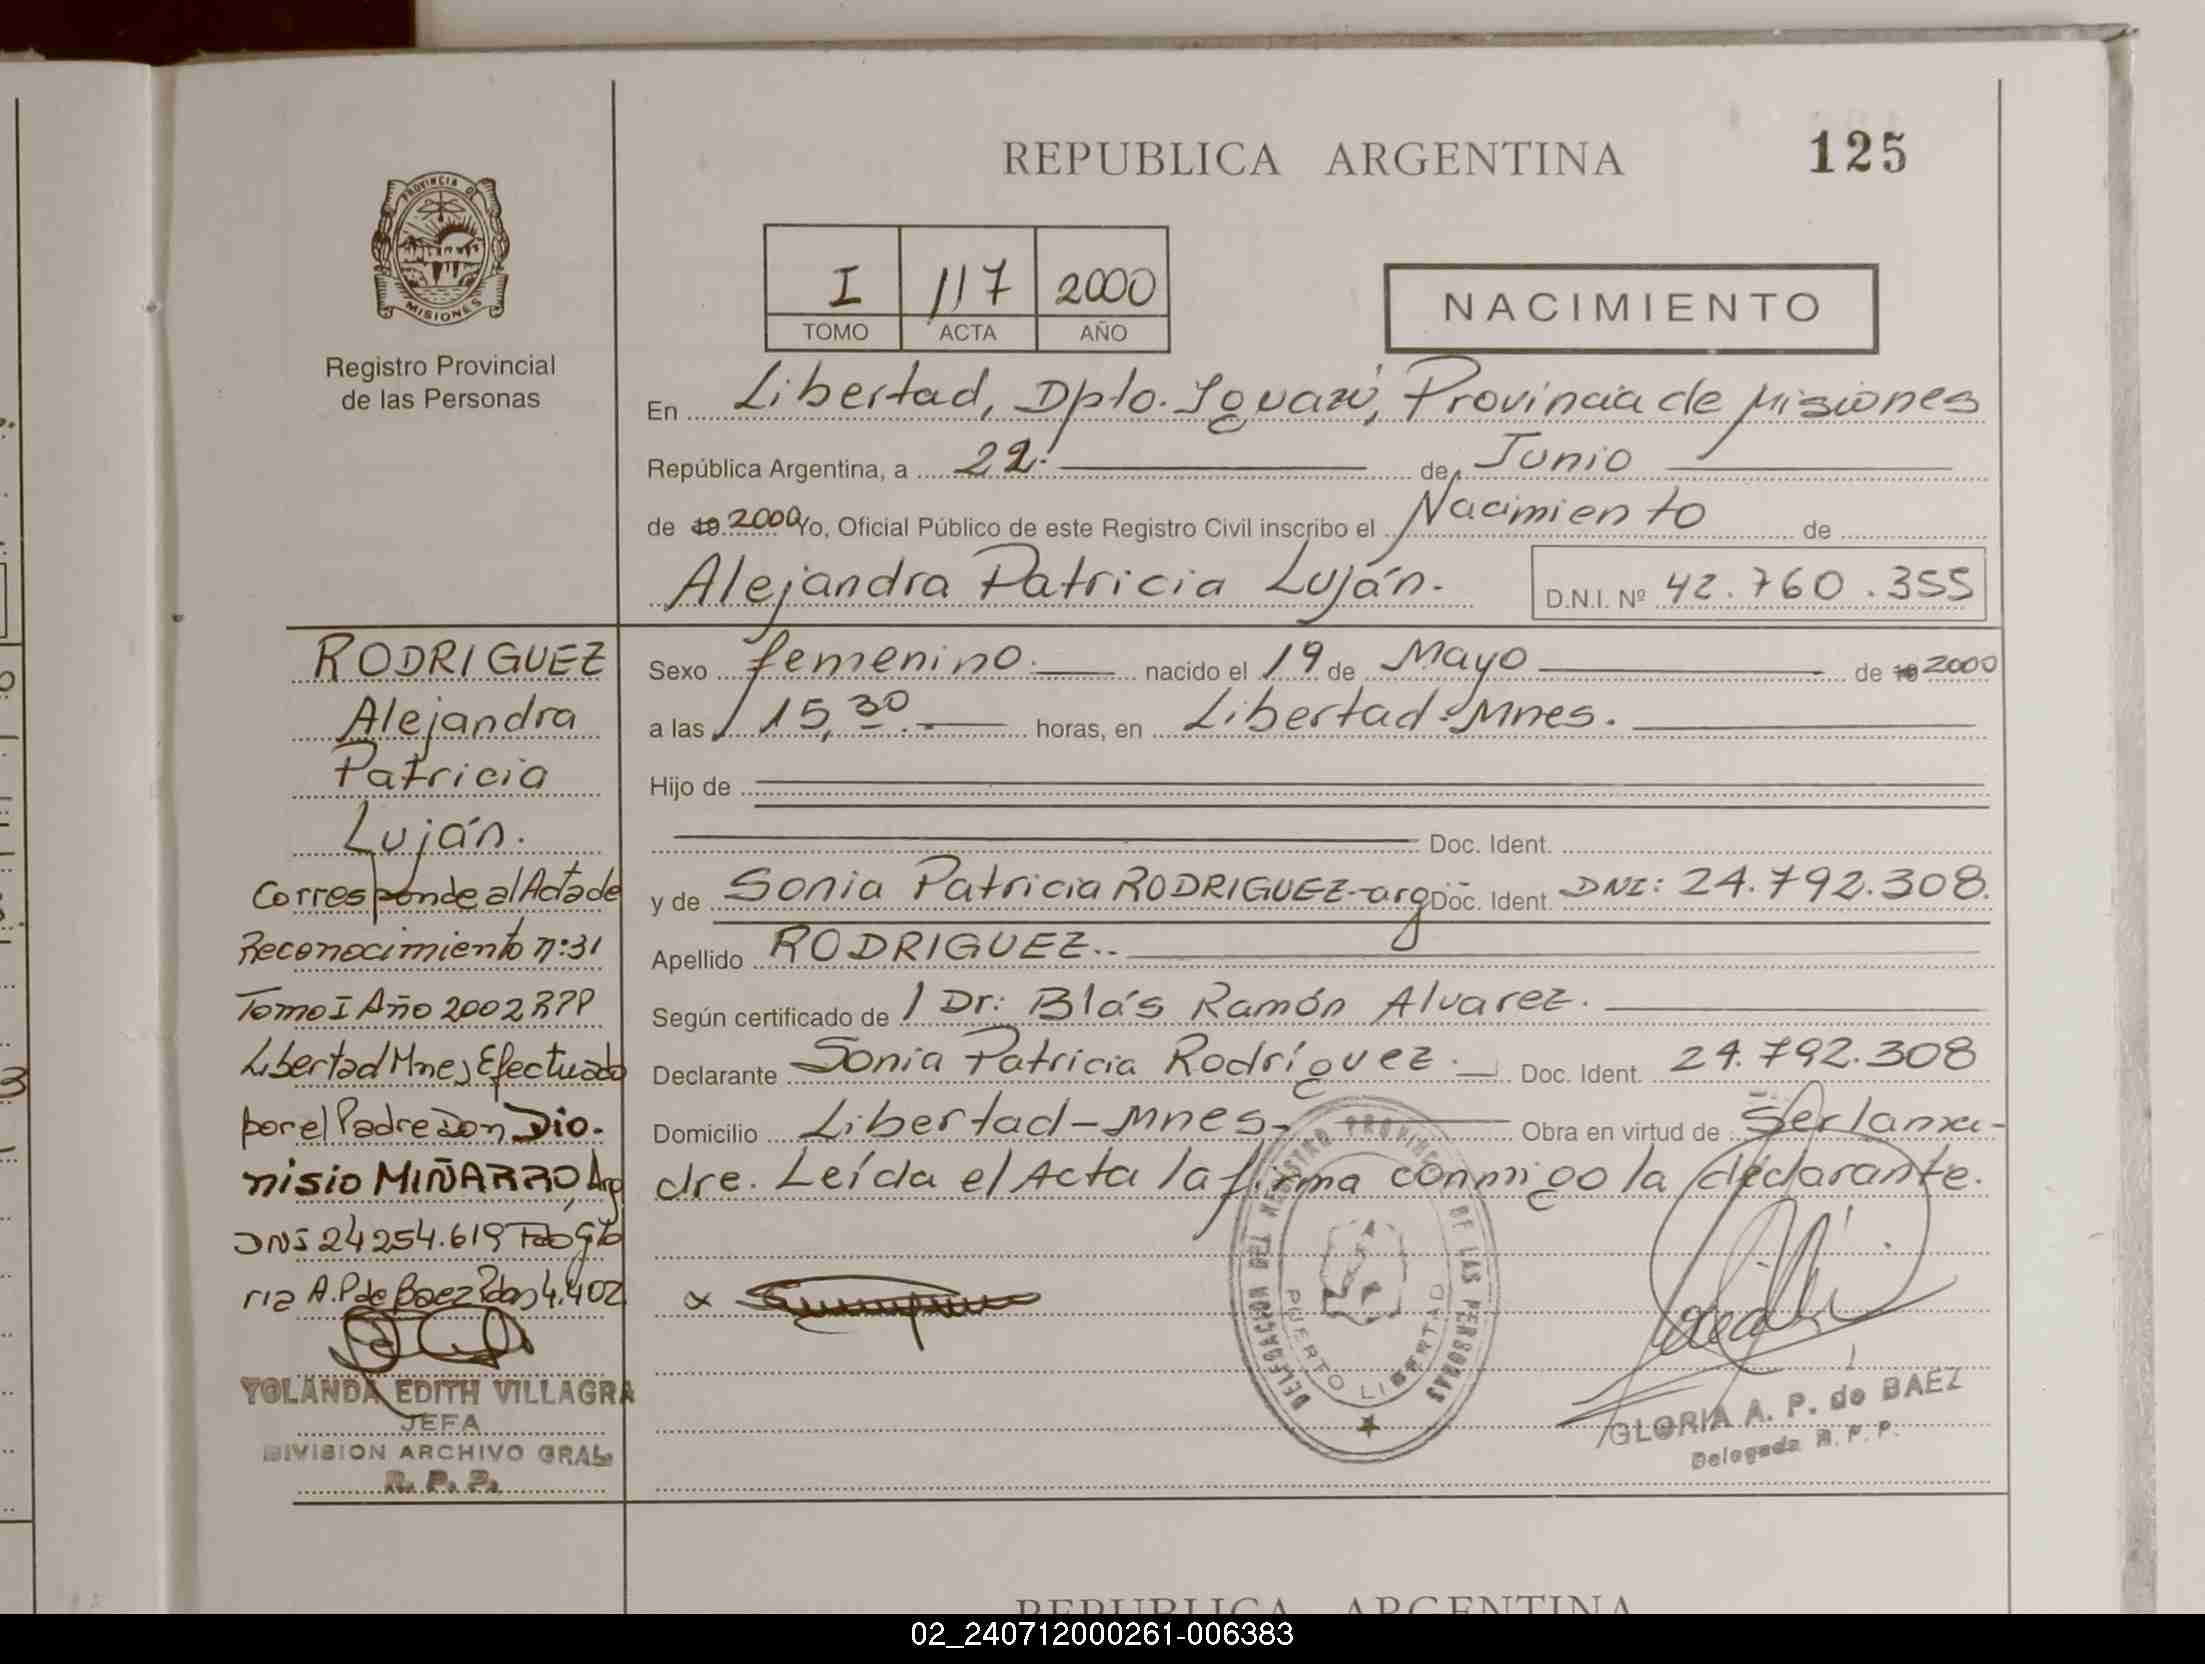 REPUBLICA ARGENTINA
125
PROVINCIA D
MISIONES
Registro Provincial
de las Personas
I 117 2000
TOMO ACTA AÑO
NACIMIENTO
En Libertad, Dpto. Iguazú, Provincia de Misiones
República Argentina, a 22. de Junio
de 19 2000 Yo, Oficial Público de este Registro Civil inscribo el Nacimiento de
Alejandra Patricia Luján. D.N.I. Nº 42.760.355
RODRIGUEZ
Alejandra
Patricia
Luján.
Corresponde al Acta de
Reconocimiento n:31
Tomo I Año 2002 RPP
Libertad Mnes Efectuado
por el Padre Don Dio.
nisio MIÑARRO, Arg
DNI 24254.619 Fdo Glo
ria A.P de Baez Pdas 4.402
YOLANDA EDITH VILLAGRA
JEFA
DIVISION ARCHIVO GRAL.
R. P. P.
Sexo femenino. nacido el 19 de Mayo de 19 2000
a las 15,30. horas, en Libertad-Mnes.
Hijo de
Doc. Ident.
y de Sonia Patricia RODRIGUEZ-arg Doc. Ident DNI: 24.792.308.
Apellido RODRIGUEZ..
Según certificado de Dr: Blás Ramón Alvarez.
Declarante Sonia Patricia Rodríguez. Doc. Ident. 24.792.308
Domicilio Libertad-Mnes. Obra en virtud de Ser la ma-
dre. Leída el Acta la firma conmigo la declarante.
DELEGACION DEL REGISTRO PROVINCIAL DE LAS PERSONAS
PUERTO LIBERTAD
GLORIA A. P. de BAEZ
Delegada R. P. P.
REPUBLICA ARGENTINA
02_240712000261-006383